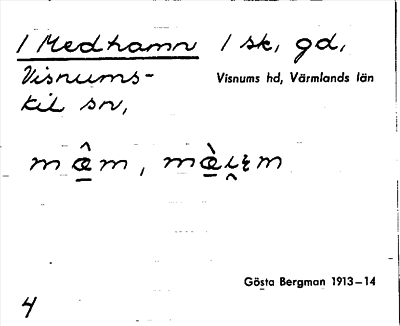 1 Medhamn 1 sk, gd,
Visnums-
kil sn,
Visnums hd, Värmlands län
Gösta Bergman 1913–14
4